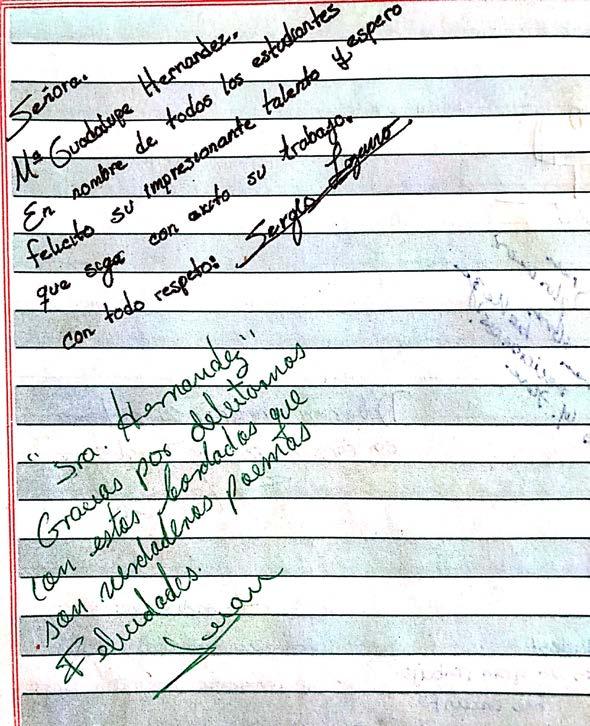 Señora.
Mª Guadalupe Hernandez.
En nombre de todos los estudiantes
felicito su impresionante talento y espero
que siga con exito su trabajo.
con todo respeto: Sergio Lozano
"Sra. Hernandez"
Gracias por deleitarnos
con estos bordados que
son verdaderos poemas
Felicidades.